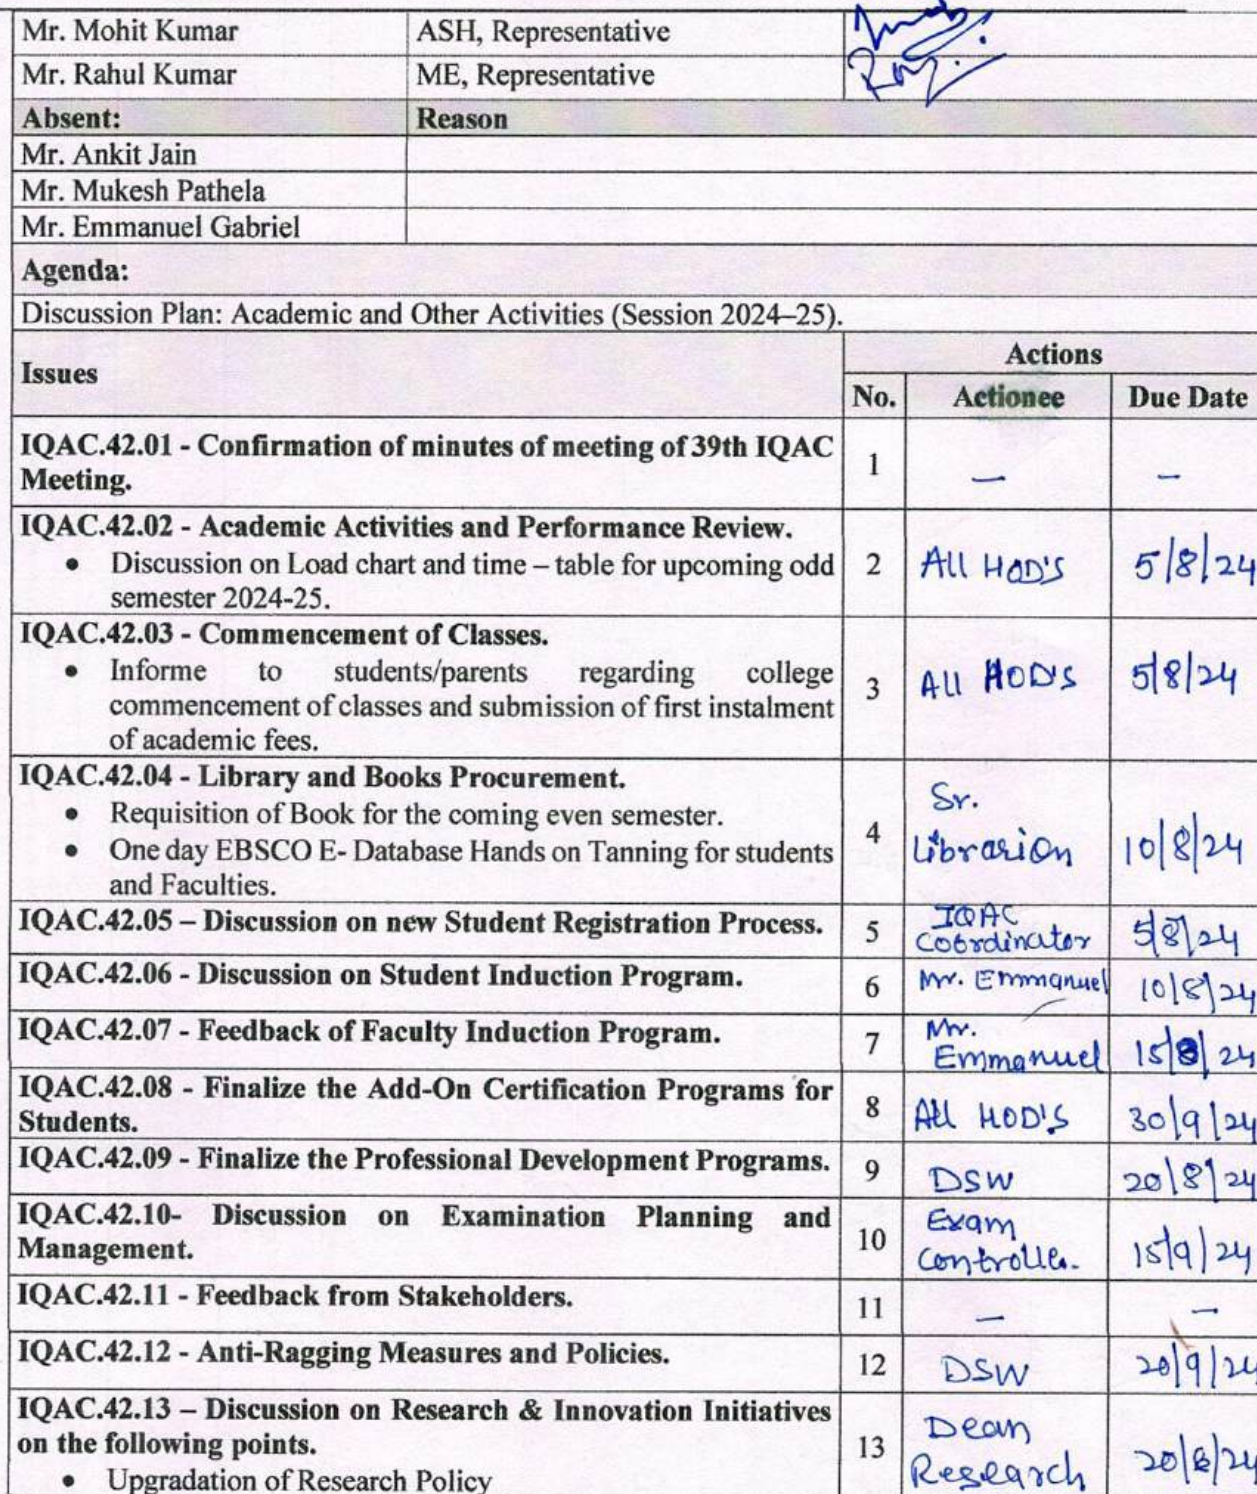 Mr. Mohit Kumar ASH, Representative
Mr. Rahul Kumar ME, Representative
Absent: Reason
Mr. Ankit Jain
Mr. Mukesh Pathela
Mr. Emmanuel Gabriel
Agenda:
Discussion Plan: Academic and Other Activities (Session 2024–25).
Issues Actions
No. Actionee Due Date
IQAC.42.01 - Confirmation of minutes of meeting of 39th IQAC
Meeting. 1 – –
IQAC.42.02 - Academic Activities and Performance Review.
• Discussion on Load chart and time – table for upcoming odd 2 All HOD'S 5/8/24
semester 2024-25.
IQAC.42.03 - Commencement of Classes.
• Informe to students/parents regarding college 3 All HOD'S 5/8/24
commencement of classes and submission of first instalment
of academic fees.
IQAC.42.04 - Library and Books Procurement.
• Requisition of Book for the coming even semester. 4 Sr.
• One day EBSCO E- Database Hands on Tanning for students Librarian 10/8/24
and Faculties.
IQAC.42.05 – Discussion on new Student Registration Process. 5 IQAC
Coordinator 5/8/24
IQAC.42.06 - Discussion on Student Induction Program. 6 Mr. Emmanuel 10/8/24
IQAC.42.07 - Feedback of Faculty Induction Program. 7 Mr.
Emmanuel 15/8/24
IQAC.42.08 - Finalize the Add-On Certification Programs for
Students. 8 All HOD'S 30/9/24
IQAC.42.09 - Finalize the Professional Development Programs. 9 DSW 20/8/24
IQAC.42.10- Discussion on Examination Planning and 10 Exam
Management. Controller. 15/9/24
IQAC.42.11 - Feedback from Stakeholders. 11 – –
IQAC.42.12 - Anti-Ragging Measures and Policies. 12 DSW 20/9/24
IQAC.42.13 – Discussion on Research & Innovation Initiatives 13 Dean
on the following points. Research 20/8/24
• Upgradation of Research Policy